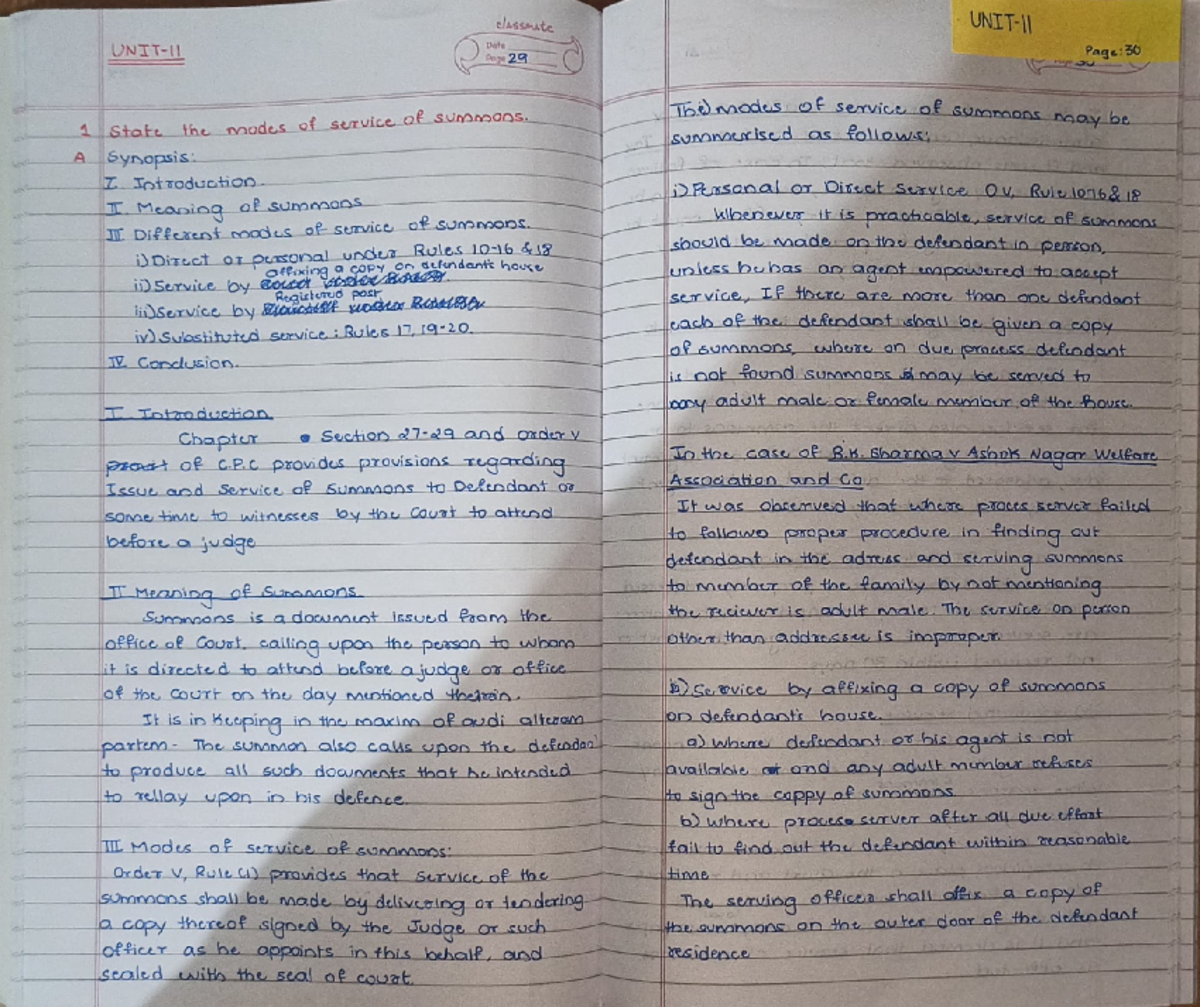 classmate
Date
Page 29
UNIT-II
1 State the modes of service of summons.
A Synopsis:
I. Introduction.
II. Meaning of summons
III Different modes of service of summons.
i) Direct or personal under Rules 10-16 & 18
affixing a copy on defendant's house
ii) Service by
Registered post
iii) Service by
iv) Substituted service: Rules 17, 19-20.
IV Conclusion.
I Introduction
Chapter Section 27-29 and order V
of C.P.C provides provisions regarding
Issue and Service of Summons to Defendant or
some time to witnesses by the Court to attend
before a judge
II Meaning of Summons
Summons is a document issued from the
office of Court. calling upon the person to whom
it is directed to attend before a judge or office
of the Court on the day mentioned therein.
It is in keeping in the maxim of audi alteram
partem- The summon also calls upon the defendan
to produce all such documents that he intended
to rellay upon in his defence.
III Modes of service of summons:
Order V, Rule (1) provides that service of the
summons shall be made by delivering or tendering
a copy thereof signed by the Judge or such
officer as he appoints in this behalf, and
sealed with the seal of court.
UNIT-II
Page: 30
The modes of service of summons may be
summerised as follows:
i) Personal or Direct Service OV, Rule 10-16 & 18
Whenever it is practicable, service of summons
should be made on the defendant in person,
unless he has an agent empowered to accept
service, If there are more than one defendant
each of the defendant shall be given a copy
of summons, where on due process defendant
is not found summons may be served to
any adult male or female member of the house.
In the case of R.K. Sharma v Ashok Nagar Welfare
Association and Co
It was observed that where proces server failed
to followo proper procedure in finding out
defendant in the adress and serving summons
to member of the family by not mentioning
the reciever is adult male. The service on person
other than addressee is improper.
Service by affixing a copy of summons
on defendant's house.
a) where defendant or his agent is not
available and any adult member refuses
to sign the cappy of summons
b) where process server after all due effort
fail to find out the defendant within reasonable
time
The serving officer shall affix a copy of
the summons on the outer door of the defendant
residence